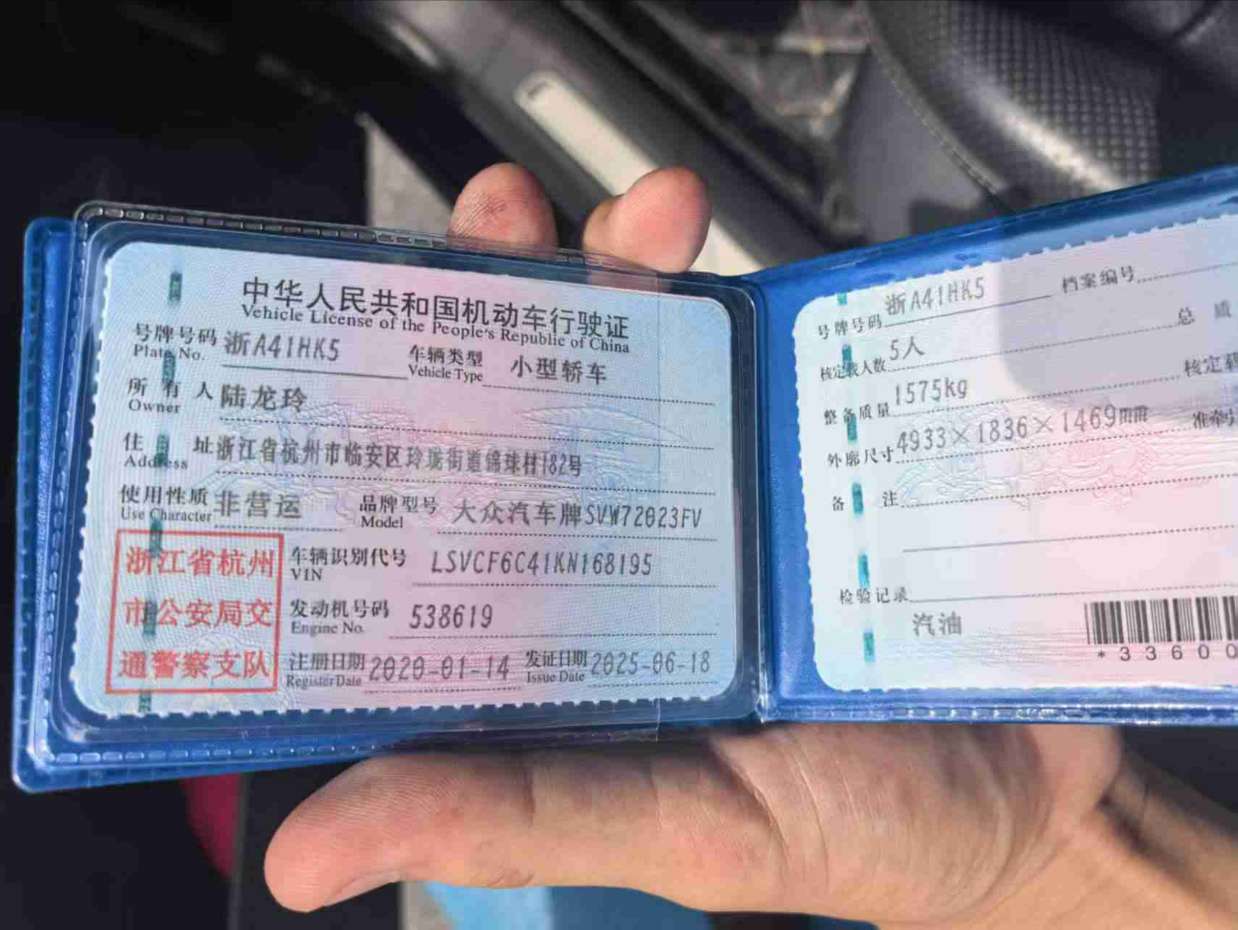 中华人民共和国机动车行驶证
Vehicle License of the People's Republic of China
号牌号码 浙A41HK5 车辆类型 小型轿车
Plate No. Vehicle Type
所有人 陆龙玲
Owner
住址 浙江省杭州市临安区玲珑街道锦球村182号
Address
使用性质 非营运 品牌型号 大众汽车牌SVW72023FV
Use Character Model
浙江省杭州
市公安局交
通警察支队
车辆识别代号 LSVCF6C41KN168195
VIN
发动机号码 538619
Engine No.
注册日期 2020-01-14 发证日期 2025-06-18
Register Date Issue Date
号牌号码 浙A41HK5 档案编号
核定载人数 5人 总质
整备质量 1575kg 核定载
外廓尺寸 4933×1836×1469mm 准牵引
备注
检验记录
汽油
*33600